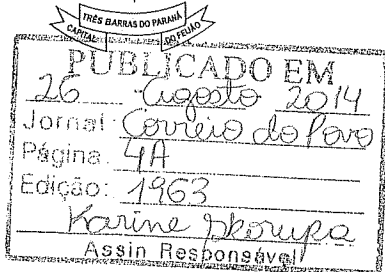 TRÊS BARRAS DO PARANÁ
CAPITAL DO FEIJÃO
PUBLICADO EM
26 Agosto 2014
Jornal: Correio do Povo
Página: 4A
Edição: 1963
Karine Skorupa
Assin Responsável